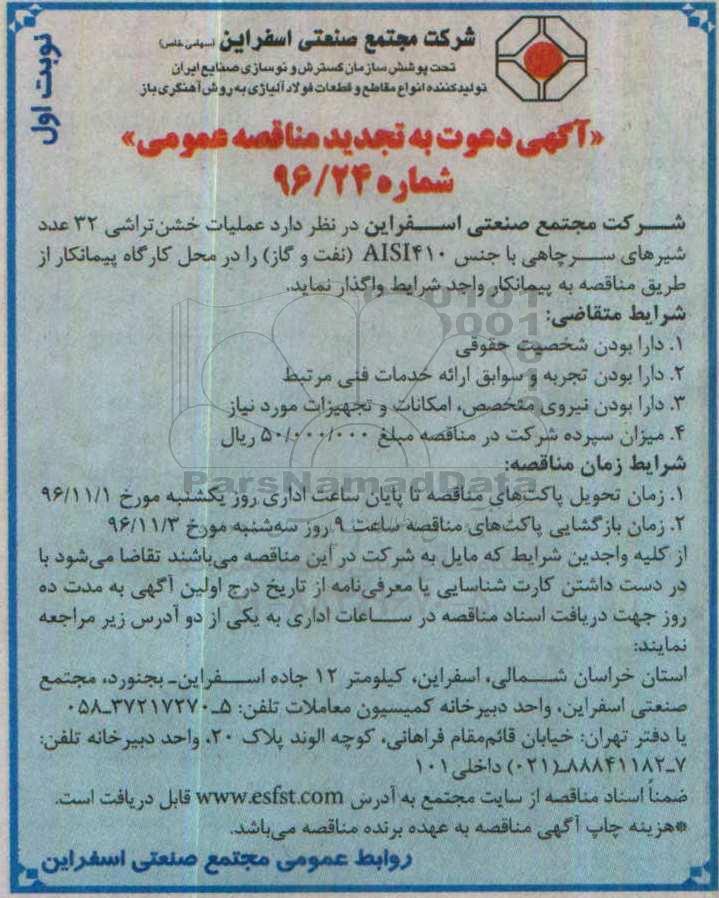 نوبت اول
شرکت مجتمع صنعتی اسفراین (سهامی خاص)
تحت پوشش سازمان گسترش و نوسازی صنایع ایران
تولیدکننده انواع مقاطع و قطعات فولاد آلیاژی به روش آهنگری باز
«آگهی دعوت به تجدید مناقصه عمومی»
شماره ۹۶/۲۴
شرکت مجتمع صنعتی اسفراین در نظر دارد عملیات خشن‌تراشی ۳۲ عدد
شیرهای سرچاهی با جنس AISI۴۱۰ (نفت و گاز) را در محل کارگاه پیمانکار از
طریق مناقصه به پیمانکار واجد شرایط واگذار نماید.
شرایط متقاضی:
۱. دارا بودن شخصیت حقوقی
۲. دارا بودن تجربه و سوابق ارائه خدمات فنی مرتبط
۳. دارا بودن نیروی متخصص، امکانات و تجهیزات مورد نیاز
۴. میزان سپرده شرکت در مناقصه مبلغ ۵۰/۰۰۰/۰۰۰ ریال
ParsNamadData
شرایط زمان مناقصه:
۱. زمان تحویل پاکت‌های مناقصه تا پایان ساعت اداری روز یکشنبه مورخ ۹۶/۱۱/۱
۲. زمان بازگشایی پاکت‌های مناقصه ساعت ۹ روز سه‌شنبه مورخ ۹۶/۱۱/۳
از کلیه واجدین شرایط که مایل به شرکت در این مناقصه می‌باشند تقاضا می‌شود با
در دست داشتن کارت شناسایی یا معرفی‌نامه از تاریخ درج اولین آگهی به مدت ده
روز جهت دریافت اسناد مناقصه در ساعات اداری به یکی از دو آدرس زیر مراجعه
نمایند:
استان خراسان شمالی، اسفراین، کیلومتر ۱۲ جاده اسفراین-بجنورد، مجتمع
صنعتی اسفراین، واحد دبیرخانه کمیسیون معاملات تلفن: ۵-۳۷۲۱۷۲۷۰-۰۵۸
یا دفتر تهران: خیابان قائم‌مقام فراهانی، کوچه الوند پلاک ۲۰، واحد دبیرخانه تلفن:
۷-۸۸۸۴۱۱۸۲-(۰۲۱) داخلی ۱۰۱
ضمناً اسناد مناقصه از سایت مجتمع به آدرس www.esfst.com قابل دریافت است.
*هزینه چاپ آگهی مناقصه به عهده برنده مناقصه می‌باشد.
روابط عمومی مجتمع صنعتی اسفراین